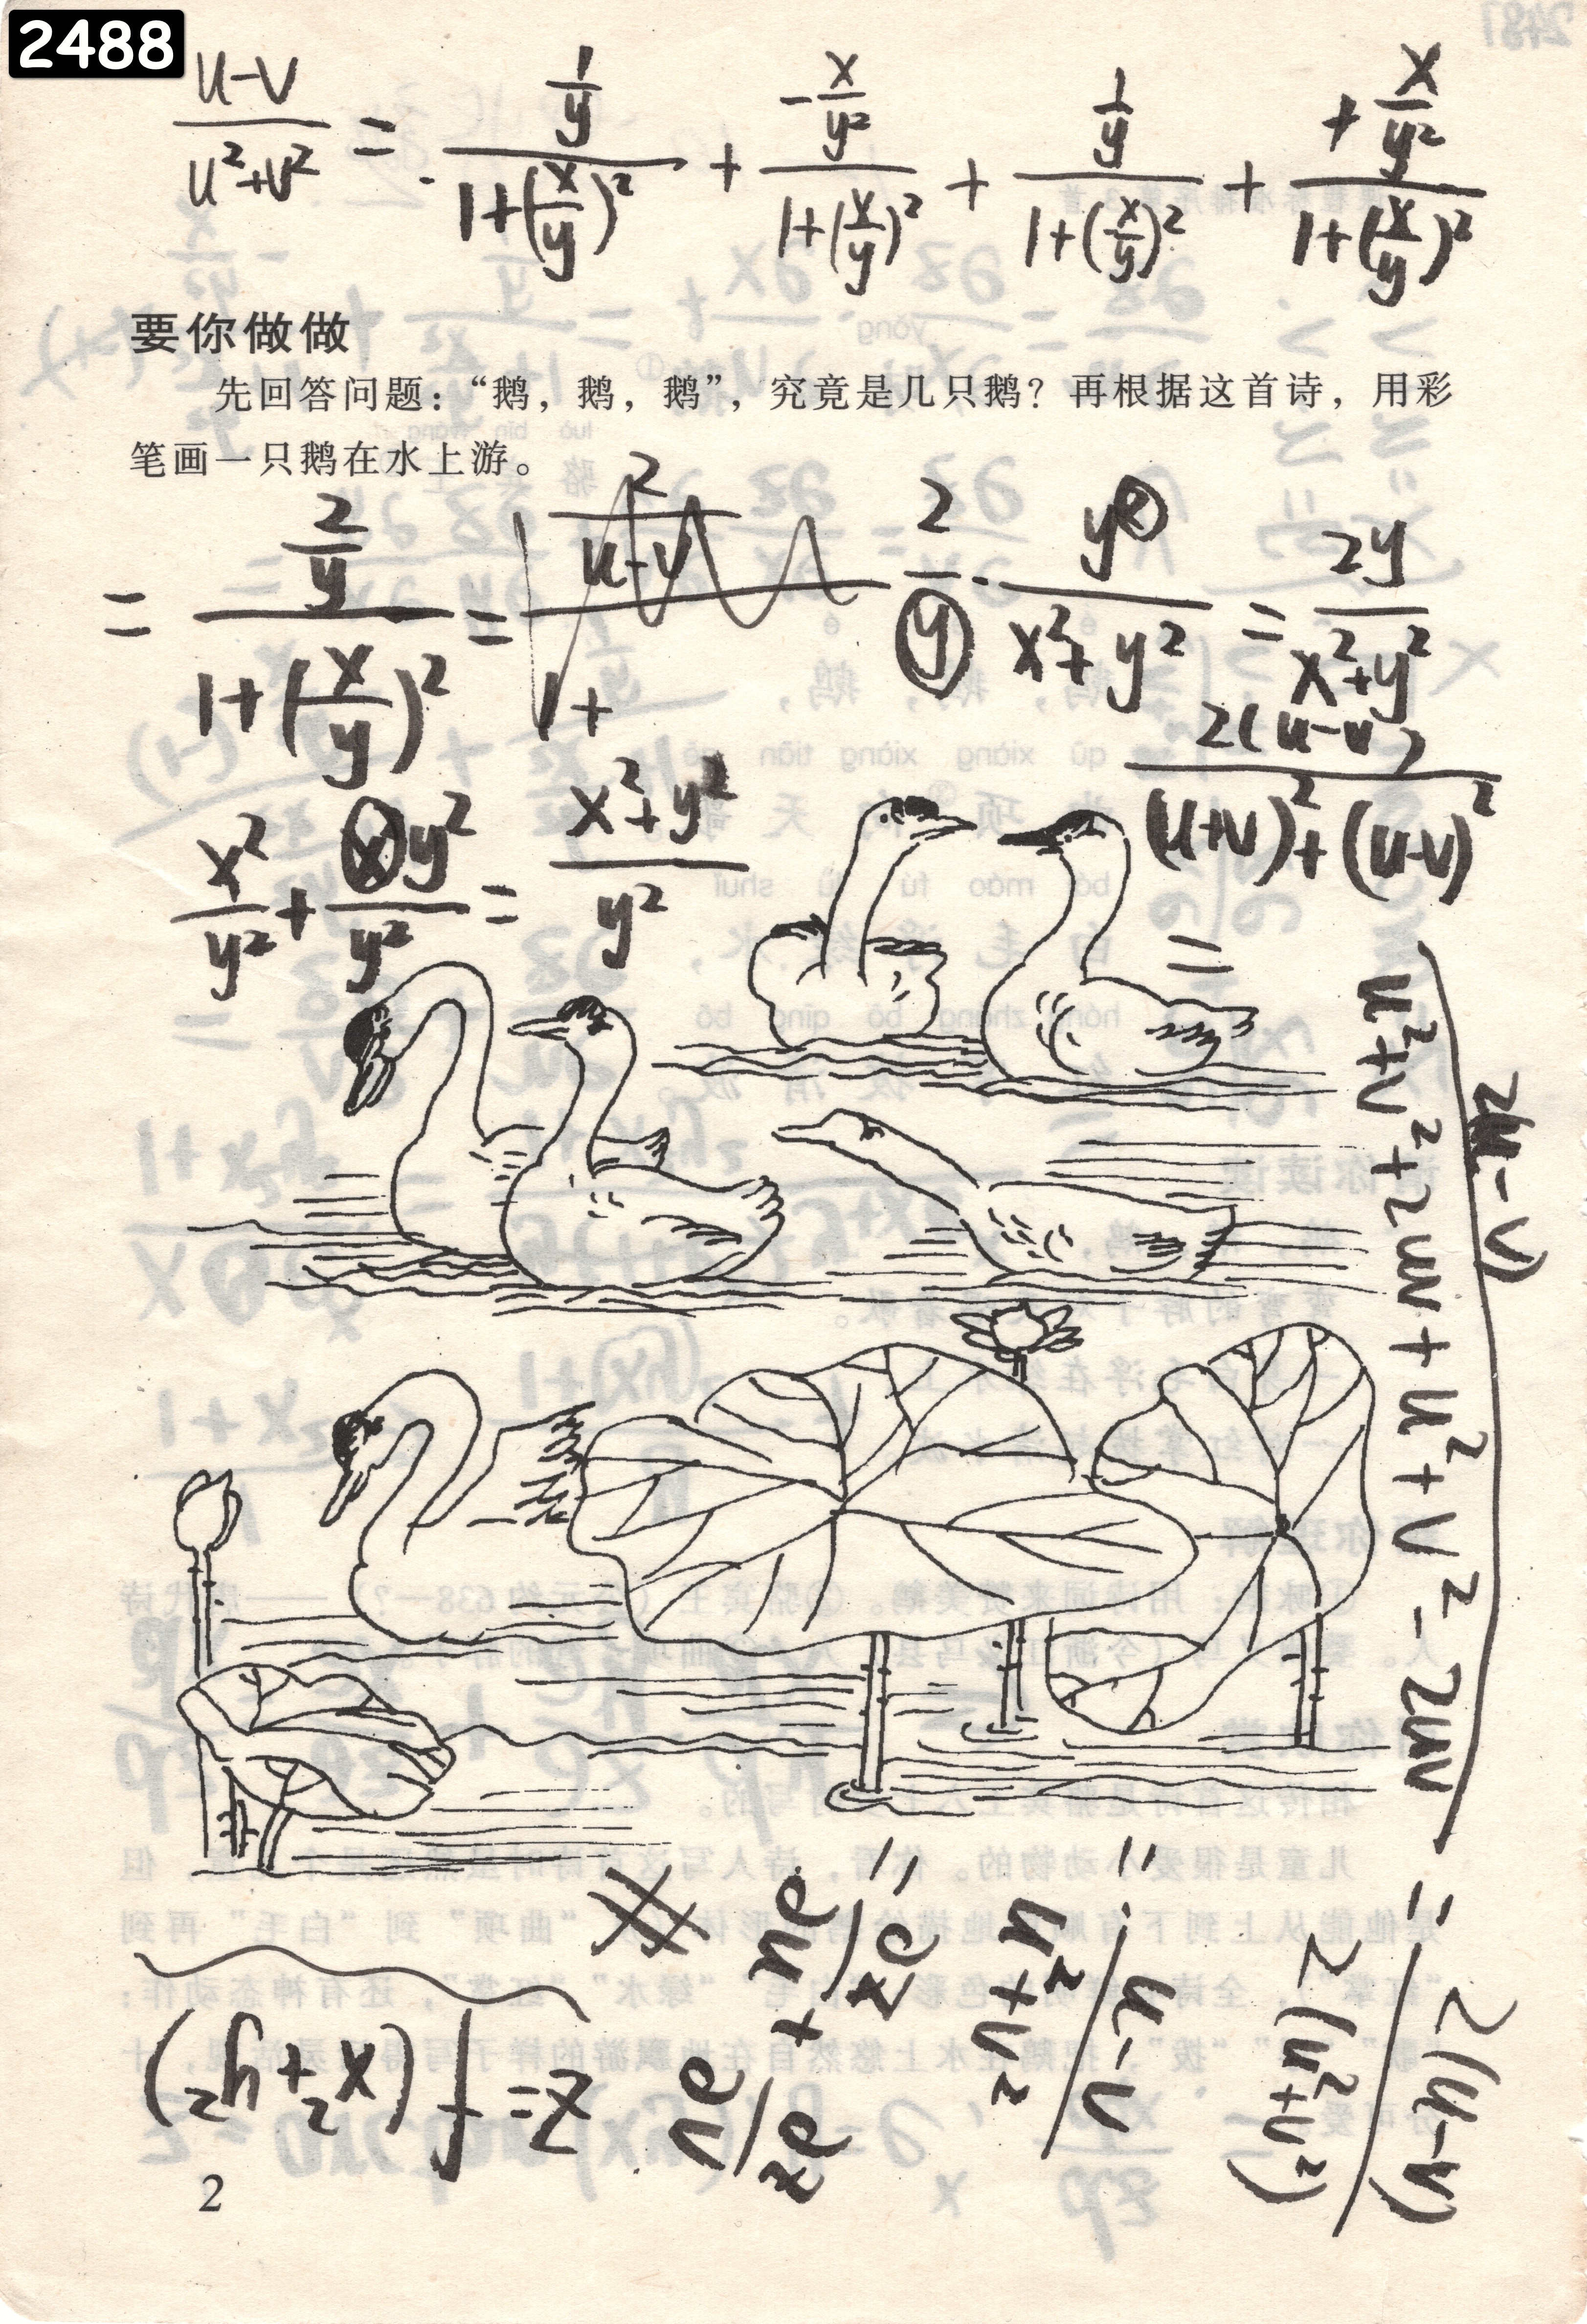 2488
(u-v)/(u²+v²) = (1/y)/(1+(x/y)²) + (-x/y²)/(1+(x/y)²) + (1/y)/(1+(x/y)²) + (+x/y²)/(1+(x/y)²)
要你做做
先回答问题：“鹅，鹅，鹅”，究竟是几只鹅？再根据这首诗，用彩
笔画一只鹅在水上游。
= (2/y)/(1+(x/y)²) = (2/(u-v))/(1+
2/y · y²/(x²+y²) = 2y/(x²+y²)
2(u-v)/((u+v)²+(u-v)²)
x²/y² + y²/y² = (x²+y²)/y²
= 2(u-v)/(u²+v²+2uv+u²+v²-2uv)
= 2(u-v)/2(u²+v²)
= (u-v)/(u²+v²)
= ∂z/∂u + ∂z/∂v
#
z=f(x²+y²)
2